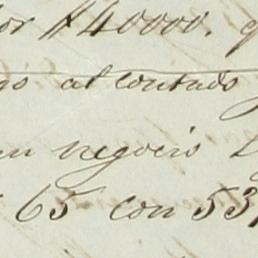 or $40000. q
go al contado
un negocio
65 con 53